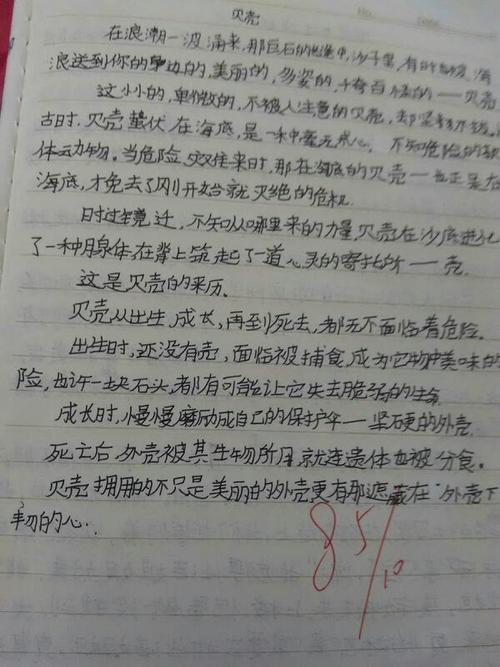 贝壳
在浪潮一波涌来,那巨石的地逢中,沙子里,有时候,海
浪送到你的身边的,美丽的,多姿的,千奇百怪的——贝壳
这小小的,卑微的,不被人注意的贝壳,却坚
古时.贝壳蛰伏在海底,是一种毫无戒心,不知危险的软
体动物。当危险,灾难来时,那在海底的贝壳——也正是在
海底,才免去了刚开始就灭绝的危机.
时过境迁,不知从哪里来的力量,贝壳在沙底进化
了一种腺体,在背上筑起了一道心灵的寄托所——壳.
这是贝壳的来历.
贝壳从出生,成长,再到死去,都无不面临着危险。
出生时,还没有壳,面临被捕食,成为它物种美味的
险,也许一块石头,都有可能让它失去脆弱的生命
成长时,慢慢磨励成自己的保护伞——坚硬的外壳.
死亡后,外壳被其生物所用,就连遗体也被分食。
贝壳拥用的不只是美丽的外壳更有那遮藏在外壳下
的心.
85/10